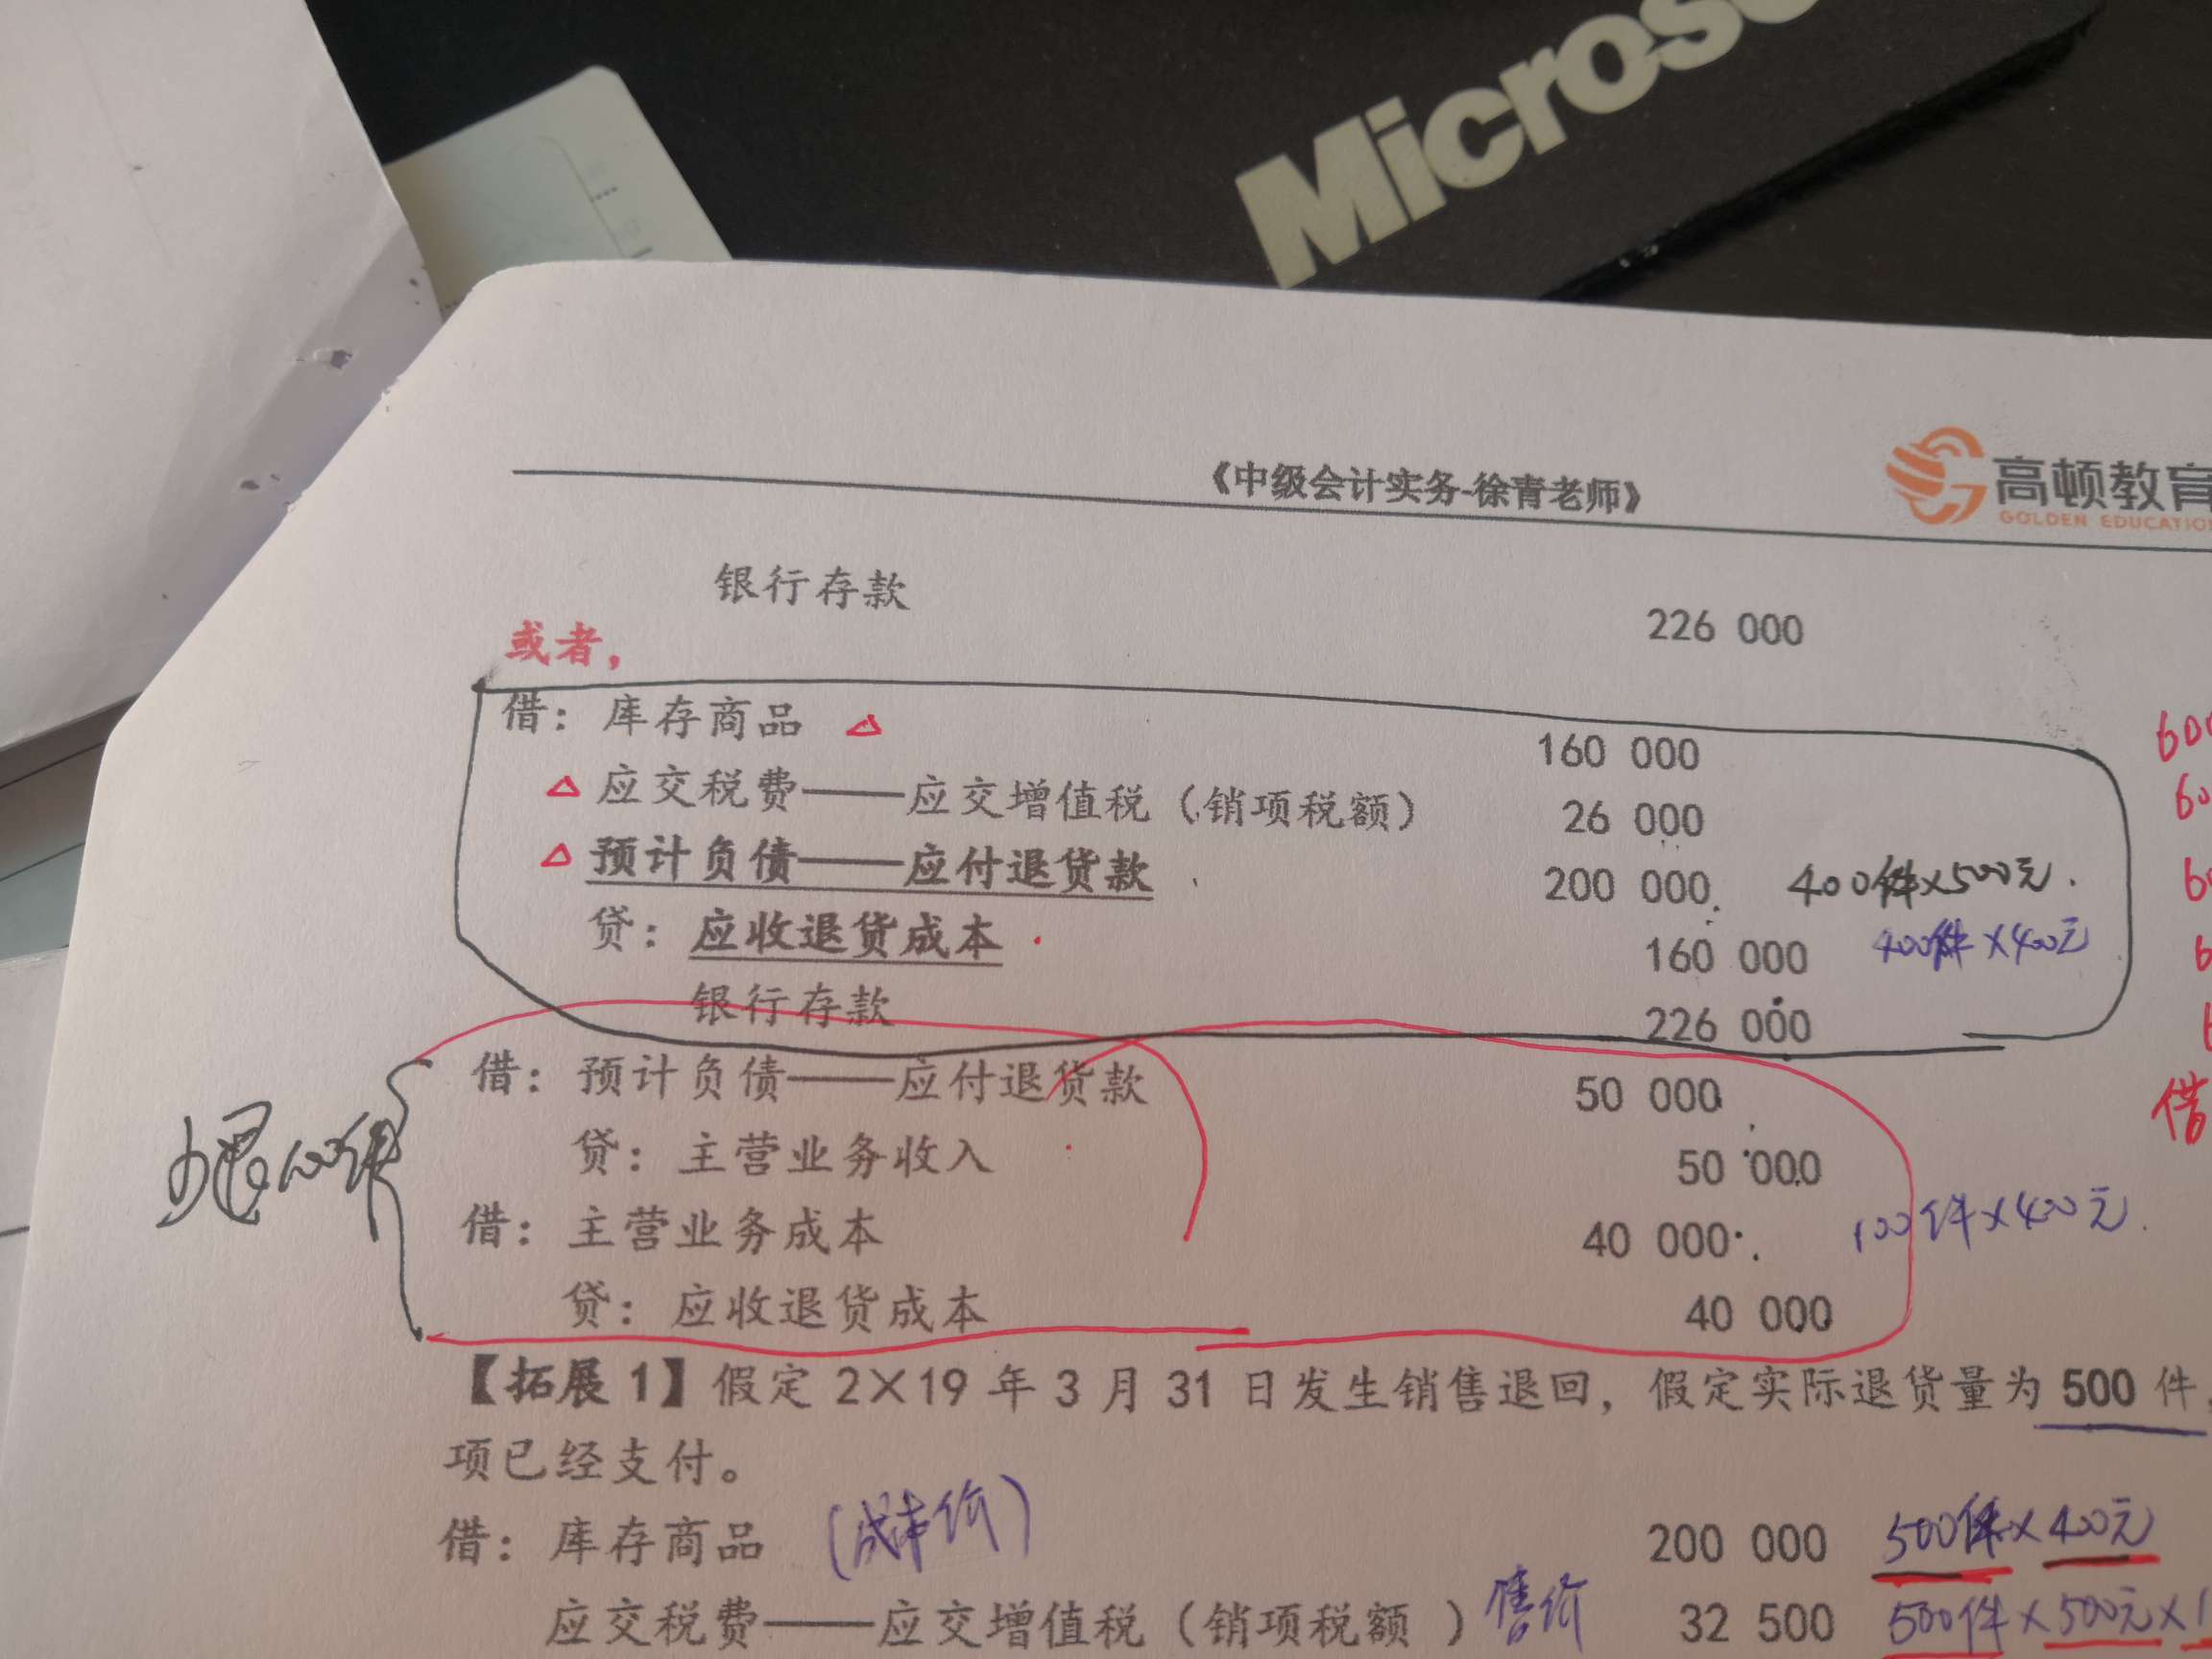 Microso
《中级会计实务-徐青老师》
高顿教育
GOLDEN EDUCATION
银行存款 226 000
或者，
借：库存商品 160 000
应交税费——应交增值税（销项税额） 26 000
预计负债——应付退货款 200 000 400件×500元.
贷：应收退货成本 160 000 400件×400元
银行存款 226 000
借：预计负债——应付退货款 50 000
贷：主营业务收入 50 000
借：主营业务成本 40 000 100件×400元.
贷：应收退货成本 40 000
借
【拓展 1】假定 2×19 年 3 月 31 日发生销售退回，假定实际退货量为 500 件，
项已经支付。
借：库存商品 (成本价) 200 000 500件×400元
应交税费——应交增值税（销项税额 ）售价 32 500 500件×500元×1